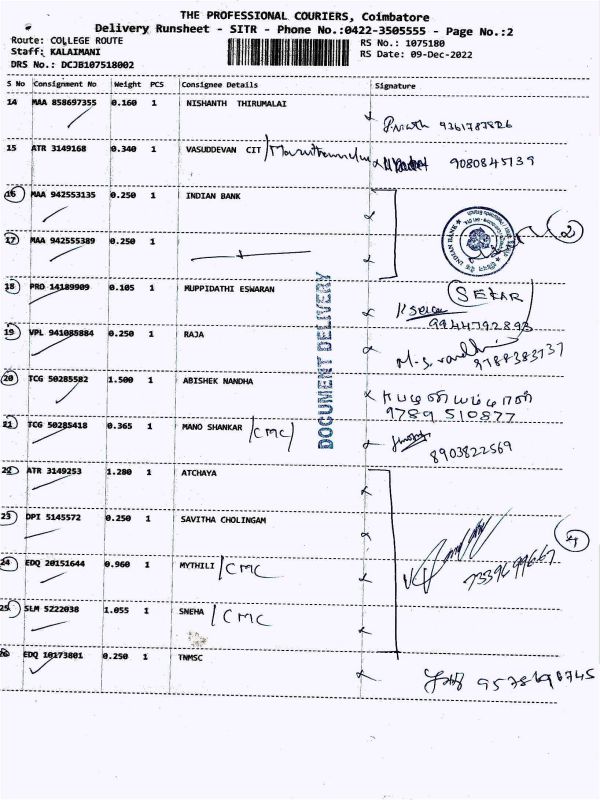 THE PROFESSIONAL COURIERS, Coimbatore
Delivery Runsheet - SITR - Phone No.:0422-3505555 - Page No.:2
Route: COLLEGE ROUTE
RS No.: 1075180
Staff: KALAIMANI
RS Date: 09-Dec-2022
DRS No.: DCJB107518002
S No Consignment No Weight PCS Consignee Details Signature
14 MAA 858697355 0.160 1 NISHANTH THIRUMALAI
15 ATR 3149168 0.340 1 VASUDDEVAN CIT 9080845739
16 MAA 942553135 0.250 1 INDIAN BANK
INDIAN BANK
2
17 MAA 942555389 0.250 1
18 PRO 14189909 0.105 1 MUPPIDATHI ESWARAN
SEKAR
9944792893
19 VPL 941085884 0.250 1 RAJA
20 TCG 50285582 1.500 1 ABISHEK NANDHA
9789 510877
21 TCG 50285418 0.365 1 MANO SHANKAR /CMC/
8903822569
DOCUMENT DELIVERY
22 ATR 3149253 1.280 1 ATCHAYA
23 DPI 5145572 0.250 1 SAVITHA CHOLINGAM
4
24 EDQ 20151644 0.960 1 MYTHILI /CMC
25 SLM 5222038 1.055 1 SNEHA /CMC
26 EDQ 10173801 0.250 1 TNMSC